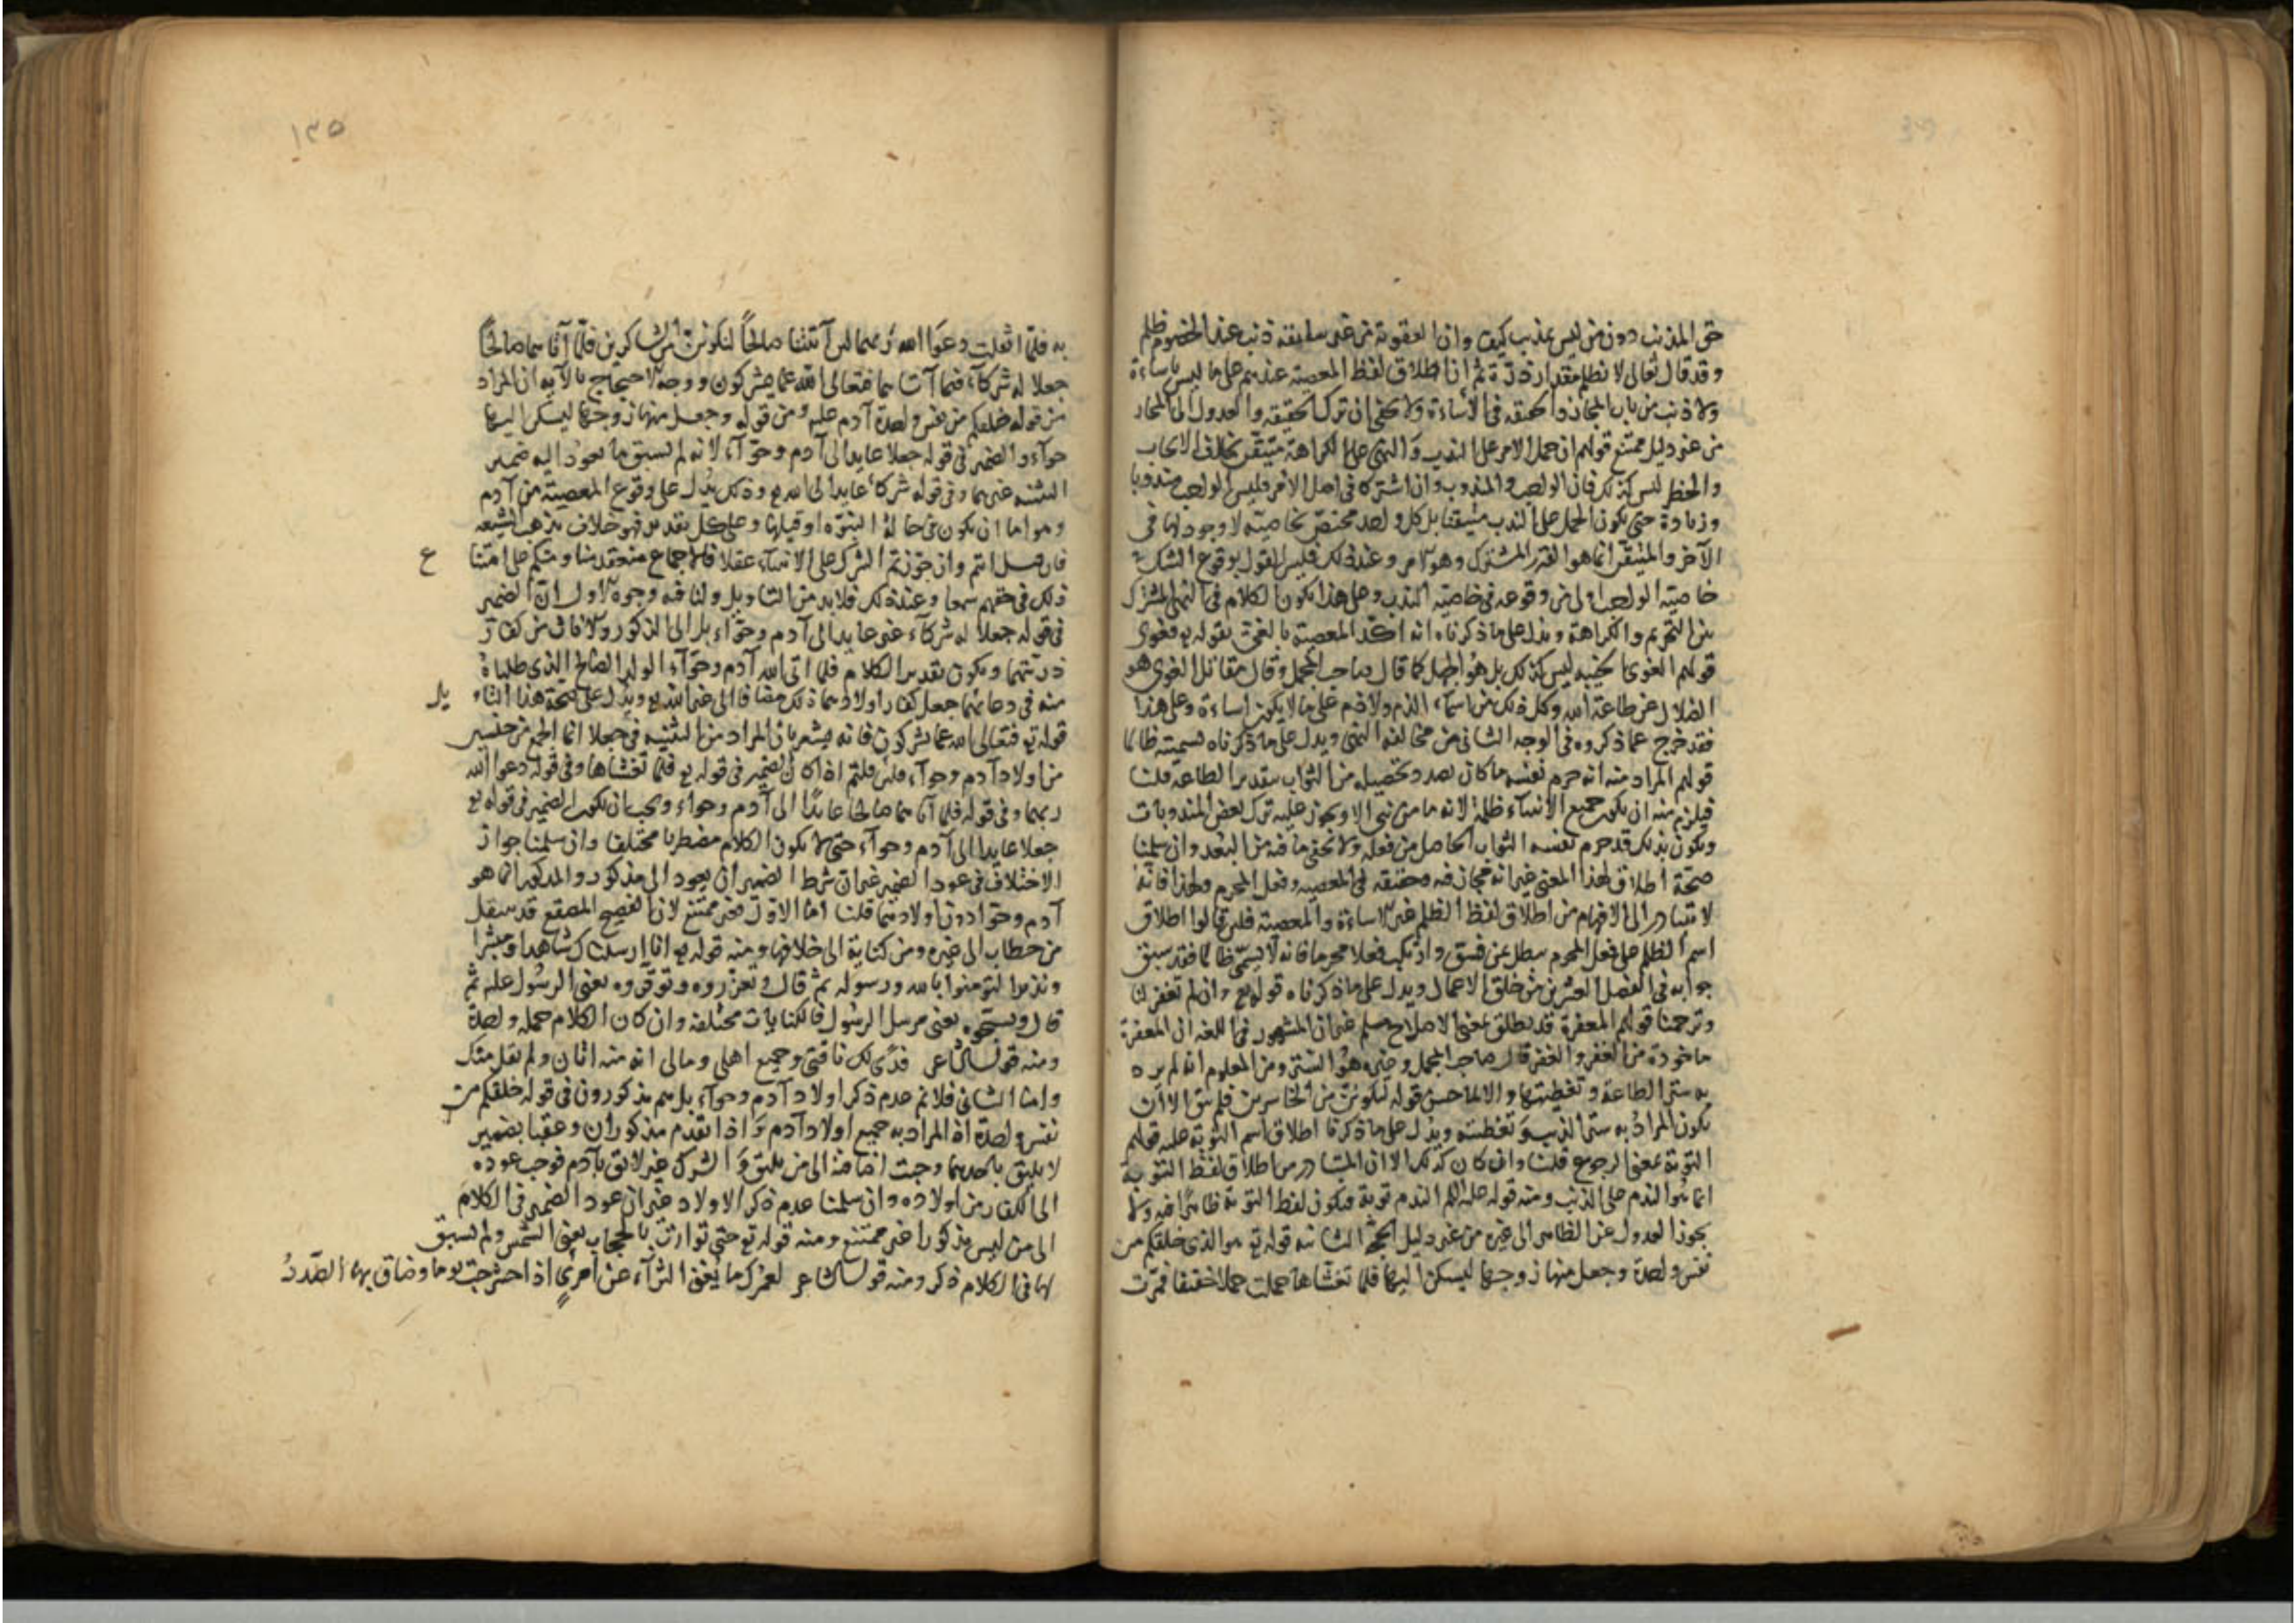 حق المذنب دون من ليس بمذنب كيف وان العقوبة من غير سابقة ذنب عند الخصوم ظلم
وقد قال تعالى لا نظلم مقدار ذرة ثم ان اطلاق لفظ المعصية عندهم على ما ليس باساءة
ولا ذنب من باب المجاز والحقيقة في الاساءة ولا يخفى ان ترك الحقيقة والعدول الى المجاز
من غير دليل ممتنع قولهم ان حمل الامر على الندب والنهي على الكراهة متيقن بخلاف الايجاب
والحظر ليس كذلك فان الواجب والمندوب وان اشتركا في اصل الامر فليس الواجب مندوبا
وزيادة حتى يكون الحمل على الندب متيقنا بل كل واحد مختص بخاصية لا وجود لها في
الآخر والمتيقن انما هو القدر المشترك وهو الامر وعند ذلك فليس القول بوقوع الشك في
خاصية الواجب اولى من وقوعه في خاصية الندب وعلى هذا يكون الكلام في النهي المشترك
بين التحريم والكراهة ويدل على ما ذكرناه انه اكد المعصية بالغي بقوله تع فغوى
قولهم الغوى الخيبة ليس كذلك بل هو الجهل كما قال صاحب المجمل وقال مقاتل الغوى هو
الضلال عن طاعة الله وكل ذلك من اسماء الذم ولا ذم على ما لا يكون اساءة وعلى هذا
فقد خرج عما ذكروه في الوجه الثاني من مخالفة النهي ويدل على ما ذكرناه تسميته ظالما
قولهم المراد منه انه حرم نفسه ما كان بصدد تحصيله من الثواب بتقدير الطاعة قلنا
فيلزم منه ان يكون جميع الانبياء ظلمة لانه ما من نبي الا ويجوز عليه ترك بعض المندوبات
ويكون بذلك قد حرم نفسه الثواب الحاصل من فعله ولا يخفى ما فيه من البعد وان سلمنا
صحة اطلاق هذا المعنى غير انه مجاز فيه وحقيقة في المعصية وفعل المحرم ولهذا فانه
لا يتبادر الى الافهام من اطلاق لفظ الظلم غير الاساءة والمعصية فلئن قالوا اطلاق
اسم الظلم على فعل المحرم يبطل بمن فسق وارتكب فعلا محرما فانه لا يسمى ظالما فقد سبق
جوابه في الفصل العشرين من خلق الاعمال ويدل على ما ذكرناه قوله تع وان لم تغفر لنا
وترحمنا قولهم المغفرة قد تطلق بمعنى الاصلاح مسلم غير ان المشهور في اللغة ان المغفرة
ماخوذة من الغفر والغفر قال صاحب المجمل وغيره هو الستر ومن المعلوم انه لم يرد
به ستر الطاعة وتغطيتها والا لما حسن قوله لنكونن من الخاسرين فلم يبق الا ان
يكون المراد به ستر الذنب وتغطيته ويدل على ما ذكرنا اطلاق اسم التوبة عليه قولهم
التوبة بمعنى الرجوع قلنا وان كان كذلك الا ان المتبادر من اطلاق لفظ التوبة
انما هو الندم على الذنب ومنه قوله عليه السلم الندم توبة فيكون لفظ التوبة ظاهرا فيه ولا
يجوز العدول عن الظاهر الى غيره من غير دليل الحجة الثانية قوله تع هو الذي خلقكم من
نفس واحدة وجعل منها زوجها ليسكن اليها فلما تغشاها حملت حملا خفيفا فمرت
١٣٥
به فلما اثقلت دعوا الله ربهما لئن آتيتنا صالحا لنكونن من الشاكرين فلما آتاهما صالحا
جعلا له شركاء فيما آتاهما فتعالى الله عما يشركون ووجه الاحتجاج بالآية ان المراد
من قوله خلقكم من نفس واحدة آدم عليه ومن قوله وجعل منها زوجها ليسكن اليها
حواء والضمير في قوله جعلا عايد الى آدم وحواء لانه لم يسبق ما يعود اليه ضمير
التثنية غيرهما وفي قوله شركاء عايد الى الله تع وذلك يدل على وقوع المعصية من آدم
وهو اما ان يكون في حالة النبوة او قبلها وعلى كل تقدير فهو خلاف مذهب الشيعة
فان قيل انتم وان جوزتم الشرك على الانبياء عقلا فالاجماع منعقد منا ومنكم على امتناع
ذلك في حقهم سمعا وعند ذلك فلا بد من التاويل ولنا فيه وجوه الاول ان الضمير
في قوله جعلا له شركاء غير عايد الى آدم وحواء بل الى الذكور والاناث من كفار
ذريتهما ويكون تقدير الكلام فلما آتى الله آدم وحواء الولد الصالح الذي طلباه
منه في دعائهما جعل كفار اولادهما ذلك مضافا الى غير الله تع ويدل على صحة هذا التاويل
قوله تع فتعالى الله عما يشركون فانه يشعر بان المراد من التثنية في جعلا انما الجمع من جنسين
من اولاد آدم وحواء فلئن قلتم اذا كان الضمير في قوله تع فلما تغشاها وفي قوله دعوا الله
ربهما وفي قوله فلما آتاهما صالحا عايدا الى آدم وحواء وجب ان يكون الضمير في قوله تع
جعلا عايدا الى آدم وحواء حتى لا يكون الكلام مضطربا مختلفا وان سلمنا جواز
الاختلاف في عود الضمير غير ان شرط الضمير ان يعود الى مذكور والمذكور انما هو
آدم وحوا دون اولادهما قلنا اما الاول فغير ممتنع لان الفصيح المصقع قد ينتقل
من خطاب الى غيره ومن كناية الى خلافها ومنه قوله تع انا ارسلناك شاهدا ومبشرا
ونذيرا لتؤمنوا بالله ورسوله ثم قال وتعزروه وتوقروه يعني الرسول عليه ثم
قال وتسبحوه يعني مرسل الرسول فالكنايات مختلفة وان كان الكلام جملة واحدة
ومنه قول الشاعر فدى لك ناقتي وجميع اهلي ومالي انه منه اتان ولم يقل منك
واما الثاني فلا نم عدم ذكر اولاد آدم وحواء بل هم مذكورون في قوله خلقكم من
نفس واحدة اذ المراد به جميع اولاد آدم واذا تقدم مذكوران وعقبا بضمير
لا يليق باحدهما وجبت اضافته الى من يليق والشرك غير لائق بآدم فوجب عوده
الى الكفار من اولاده وان سلمنا عدم ذكر الاولاد غير ان عود الضمير في الكلام
الى من ليس مذكورا غير ممتنع ومنه قوله تع حتى توارت بالحجاب يعني الشمس ولم يسبق
لها في الكلام ذكر ومنه قول الشاعر لعمرك ما يغني الثراء عن امرئ اذا حشرجت يوما وضاق بها الصدر